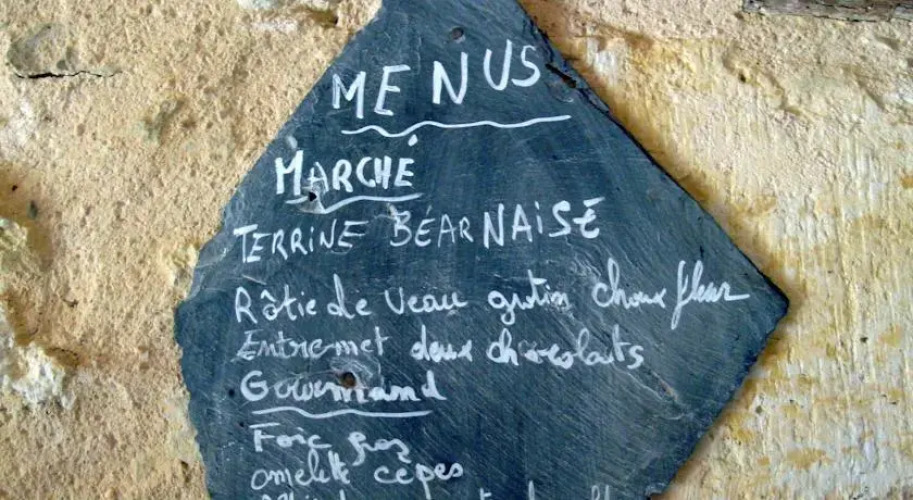 MENUS
MARCHÉ
TERRINE BÉARNAISE
Rôtie de veau gratin choux fleur
Entremet deux chocolats
Gourmand
Foie gras
omelette cèpes